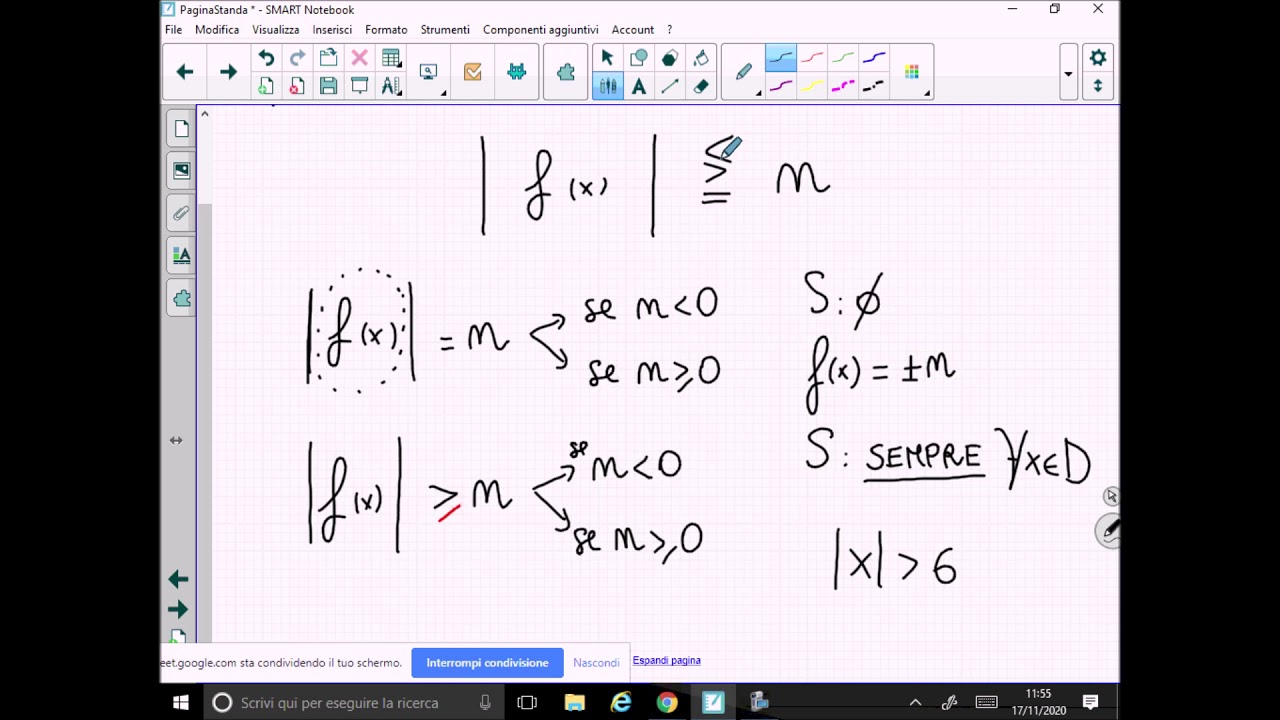 PaginaStanda * - SMART Notebook
File Modifica Visualizza Inserisci Formato Strumenti Componenti aggiuntivi Account ?
| f(x) | ⋚ m
|f(x)| = m
se m < 0 S: ∅
se m ≥ 0 f(x) = ±m
|f(x)| ≥ m
se m < 0 S: SEMPRE ∀x∈D
se m ≥ 0
|x| > 6
eet.google.com sta condividendo il tuo schermo. Interrompi condivisione Nascondi Espandi pagina
Scrivi qui per eseguire la ricerca
11:55
17/11/2020